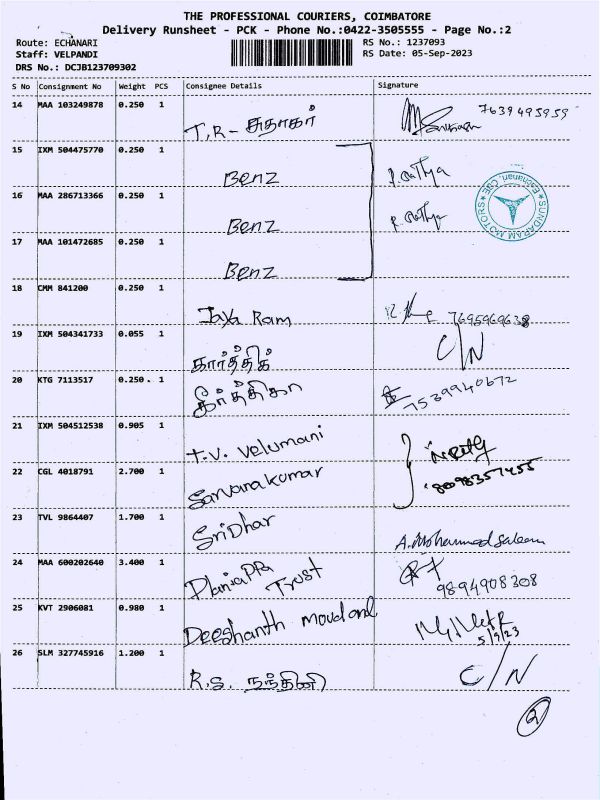 THE PROFESSIONAL COURIERS, COIMBATORE
Delivery Runsheet - PCK - Phone No.:0422-3505555 - Page No.:2
Route: ECHANARI
RS No.: 1237093
Staff: VELPANDI
RS Date: 05-Sep-2023
DRS No.: DCJB123709302
S No Consignment No Weight PCS Consignee Details Signature
14 MAA 103249878 0.250 1
T.R - சுதாகர் 7639495959
15 IXM 504475770 0.250 1
Benz P. Sathya
16 MAA 286713366 0.250 1
Benz P. Sathya
SUNDARAM MOTORS
Eachanari, CBE
17 MAA 101472685 0.250 1
Benz
18 CMM 841200 0.250 1
Jaya Ram 7695969638
19 IXM 504341733 0.055 1
கார்த்திக் C/N
20 KTG 7113517 0.250 1
கீர்த்திகா 7539940672
21 IXM 504512538 0.905 1
T.V. Velumani
22 CGL 4018791 2.700 1
Sarvanakumar 8098357455
23 TVL 9864407 1.700 1
Sridhar A. Mohammed Saleem
24 MAA 600202640 3.400 1
Trust 9894908308
25 KVT 2906081 0.980 1
Deeshanth
5/9/23
26 SLM 327745916 1.200 1
R.S. நந்தினி C/N
2